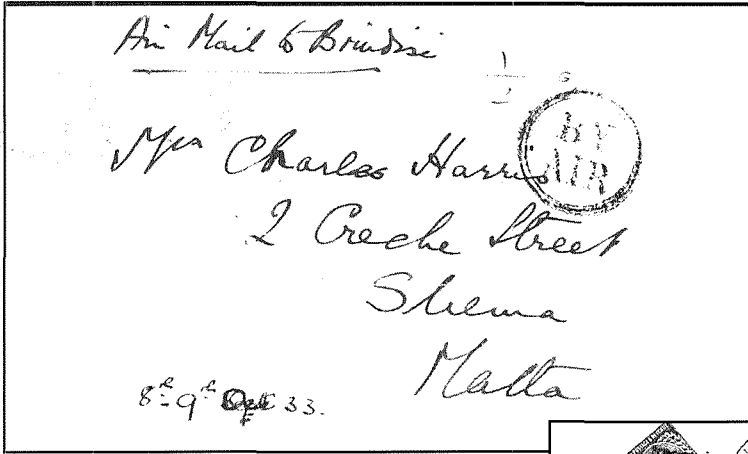 Air Mail to Brindisi
1/2
BY
AIR
Mrs Charles Harris
2 Creche Street
Sliema
Malta
8th 9th 33.